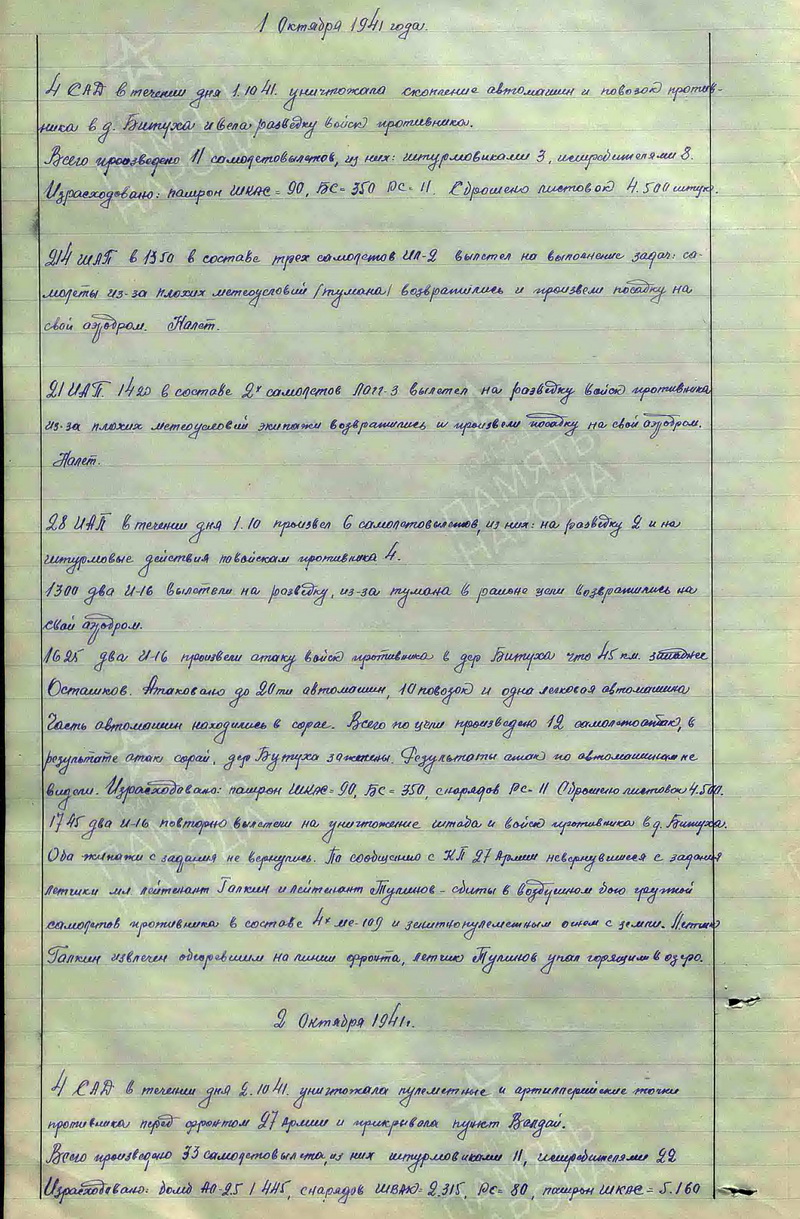 1 Октября 1941 года.
4 САД в течении дня 1.10 41. уничтожала скопление автомашин и повозок против-
ника в д. Битуха и вела разведку войск противника.
Всего произведено 11 самолетовылетов, из них: штурмовиками 3, истребителями 8.
Израсходовано: патрон ШКАС = 90, БС = 350 РС = 11. Сброшено листовок 4.500 штук.
214 ШАП в 1350 в составе трех самолетов ИЛ-2 вылетел на выполнение задач: са-
молеты из-за плохих метеоусловий /тумана/ возвратились и произвели посадку на
свой аэродром. Налет.
21 ИАП. 1420 в составе 2х самолетов ЛАГГ-3 вылетел на разведку войск противника
из-за плохих метеоусловий экипажи возвратились и произвели посадку на свой аэродром.
Налет.
28 ИАП в течении дня 1.10 произвел 6 самолетовылетов, из них: на разведку 2 и на
штурмовые действия по войскам противника 4.
1300 два И-16 вылетели на разведку, из-за тумана в районе цели возвратились на
свой аэродром.
1625 два И-16 произвели атаку войск противника в дер Битуха что 45 км. западнее
Осташков. Атаковано до 20ти автомашин, 10 повозок и одна легковая автомашина
Часть автомашин находились в сарае. Всего по цели произведено 12 самолетоатак, в
результате атак сарай, дер Бутуха зажжены. Результаты атак по автомашинам не
видели. Израсходовано: патрон ШКАС = 90, БС = 350, снарядов РС = 11 Сброшено листовок 4.500.
1745 два И-16 повторно вылетели на уничтожение штаба и войск противника в д. Битуха.
Оба экипажи с задания не вернулись. По сообщению с КП 27 Армии невернувшиеся с задания
летчики мл лейтенант Галкин и лейтенант Тулинов - сбиты в воздушном бою группой
самолетов противника в составе 4х ме-109 и зенитнопулеметным огнем с земли. Летчик
Галкин извлечен обгоревшим на линии фронта, летчик Тулинов упал горящим в озеро.
2 Октября 1941г.
4 САД в течении дня 2.10 41. уничтожала пулеметные и артиллерийские точки
противника перед фронтом 27 Армии и прикрывала пункт Валдай.
Всего произведено 33 самолетовылета, из них штурмовиками 11, истребителями 22
Израсходовано: бомб АО-25 / 445, снарядов ШВАК = 2.315, РС = 80, патрон ШКАС = 5.160
ПАМЯТЬ
НАРОДА